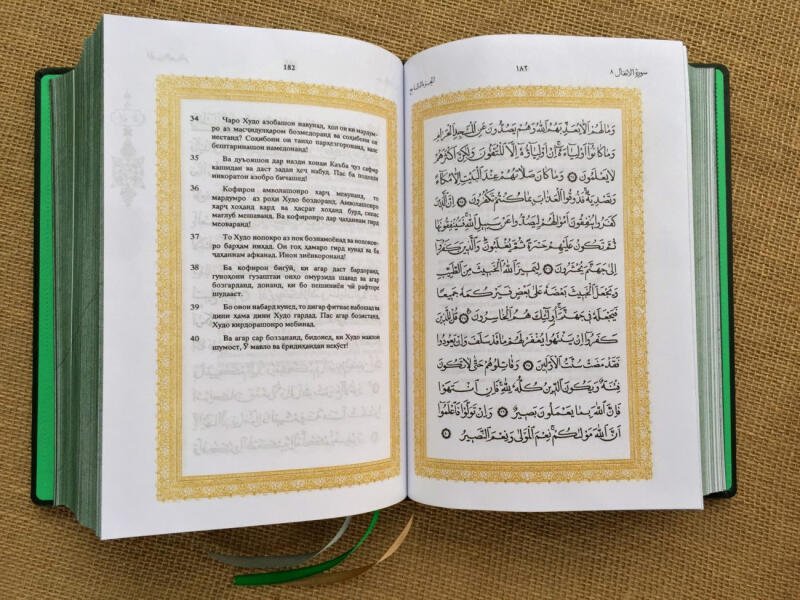 182
34 Чаро Худо азобашон накунад, ҳол он ки мардум-
ро аз масҷидулҳаром бозмедоранд ва соҳибони он
нестанд? Соҳибони он танҳо парҳезгоронанд, вале
бештаринашон намедонанд!
35 Ва дуъояшон дар назди хонаи Каъба ҷуз сафир
кашидан ва даст задан ҳеч набуд. Пас ба подоши
инкоратон азобро бичашед!
36 Кофирон амволашонро харҷ мекунанд, то
мардумро аз роҳи Худо боздоранд. Амволашонро
харҷ хоҳанд кард ва ҳасрат хоҳанд бурд, сипас
мағлуб мешаванд. Ва кофиронро дар ҷаҳаннам гирд
меоваранд!
37 То Худо нопокро аз пок бознамоёнад ва нопоков-
ро барҳам ниҳад. Он гоҳ ҳамаро гирд кунад ва ба
ҷаҳаннам афканад. Инон зиёнкоронанд!
38 Ба кофирон бигӯй, ки агар даст бардоранд,
гуноҳони гузаштаи онҳо омурзида шавад ва агар
бозгарданд, донанд, ки бо пешиниён чӣ рафторе
шудааст.
39 Бо онон набард кунед, то дигар фитнае набошад ва
дини ҳама дини Худо гардад. Пас агар бозистанд,
Худо кирдорашонро мебинад.
40 Ва агар сар боззананд, бидонед, ки Худо мавлои
шумост, Ӯ мавло ва ёридиҳандаи некӯст!
سورة الأنفال ٨
١٨٢
الجزء التاسع
وَمَا لَهُمْ أَلَّا يُعَذِّبَهُمُ اللَّهُ وَهُمْ يَصُدُّونَ عَنِ الْمَسْجِدِ الْحَرَامِ
وَمَا كَانُوا أَوْلِيَاءَهُ إِنْ أَوْلِيَاؤُهُ إِلَّا الْمُتَّقُونَ وَلَكِنَّ أَكْثَرَهُمْ
لَا يَعْلَمُونَ ٣٤ وَمَا كَانَ صَلَاتُهُمْ عِنْدَ الْبَيْتِ إِلَّا مُكَاءً
وَتَصْدِيَةً فَذُوقُوا الْعَذَابَ بِمَا كُنْتُمْ تَكْفُرُونَ ٣٥ إِنَّ الَّذِينَ
كَفَرُوا يُنْفِقُونَ أَمْوَالَهُمْ لِيَصُدُّوا عَنْ سَبِيلِ اللَّهِ فَسَيُنْفِقُونَهَا
ثُمَّ تَكُونُ عَلَيْهِمْ حَسْرَةً ثُمَّ يُغْلَبُونَ وَالَّذِينَ كَفَرُوا
إِلَى جَهَنَّمَ يُحْشَرُونَ ٣٦ لِيَمِيزَ اللَّهُ الْخَبِيثَ مِنَ الطَّيِّبِ
وَيَجْعَلَ الْخَبِيثَ بَعْضَهُ عَلَى بَعْضٍ فَيَرْكُمَهُ جَمِيعًا
فَيَجْعَلَهُ فِي جَهَنَّمَ أُولَئِكَ هُمُ الْخَاسِرُونَ ٣٧ قُلْ لِلَّذِينَ
كَفَرُوا إِنْ يَنْتَهُوا يُغْفَرْ لَهُمْ مَا قَدْ سَلَفَ وَإِنْ يَعُودُوا
فَقَدْ مَضَتْ سُنَّتُ الْأَوَّلِينَ ٣٨ وَقَاتِلُوهُمْ حَتَّى لَا تَكُونَ
فِتْنَةٌ وَيَكُونَ الدِّينُ كُلُّهُ لِلَّهِ فَإِنِ انْتَهَوْا
فَإِنَّ اللَّهَ بِمَا يَعْمَلُونَ بَصِيرٌ ٣٩ وَإِنْ تَوَلَّوْا فَاعْلَمُوا
أَنَّ اللَّهَ مَوْلَاكُمْ نِعْمَ الْمَوْلَى وَنِعْمَ النَّصِيرُ ٤٠